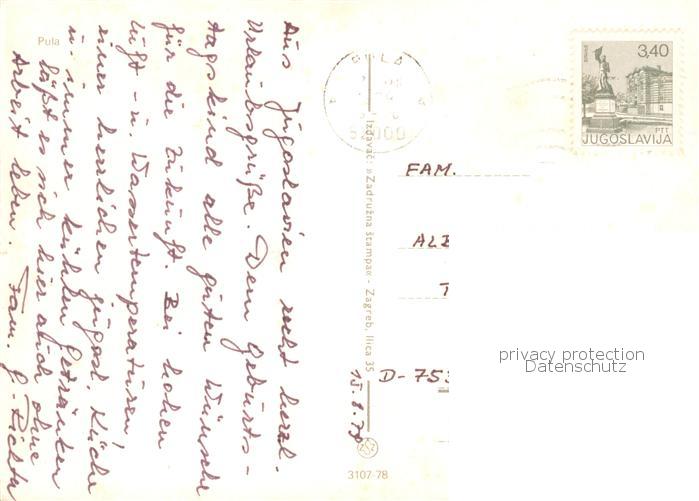 Pula
Aus Jugoslavien recht herzl.
Urlaubsgrüße. Dem Geburts-
tagskind alle guten Wünsche
für die Zukunft. Bei hohen
Luft- u. Wassertemperaturen,
einer herrlichen jugosl. Küche
u. immer kühlen Getränken
läßt es sich hier auch ohne
Arbeit leben. Fam. G. Richter
Izdavač: »Zadružna štampa« - Zagreb, Ilica 35
3107-78
PULA
3,40
PTT
JUGOSLAVIJA
FAM.
D-753
privacy protection
Datenschutz